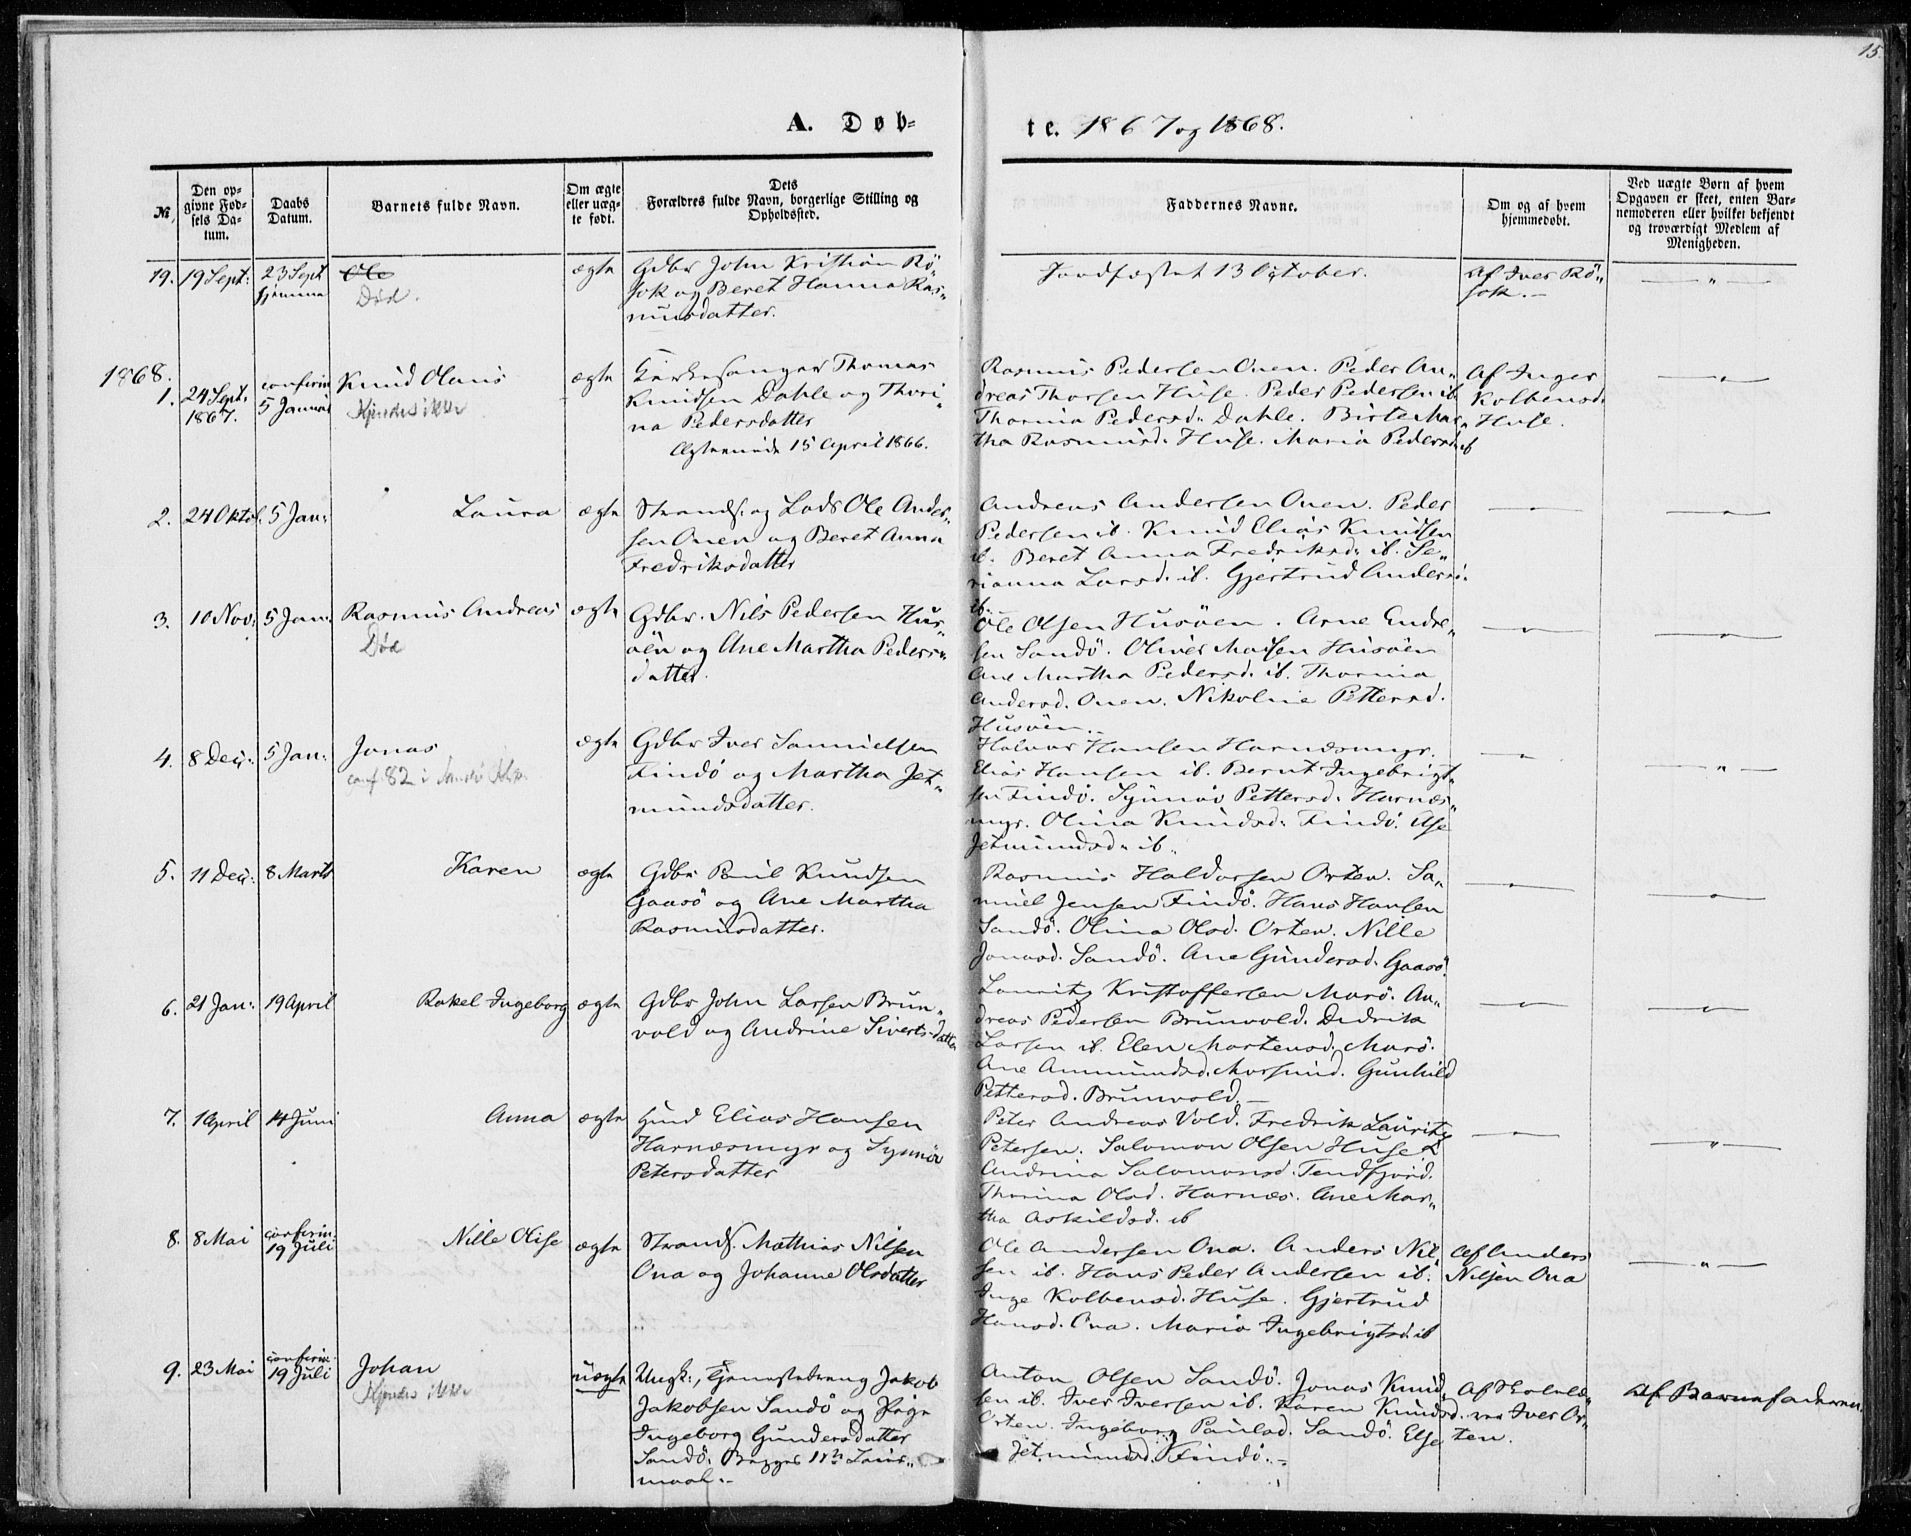 15
A. Døb-
te. 1867 og 1868.
№
Den op-
givne Fød-
sels Da-
tum.
Daabs
Datum.
Barnets fulde Navn.
Om ægte
eller uæg-
te født.
Dets
Forældres fulde Navn, borgerlige Stilling og
Opholdssted.
Faddernes Navne.
Om og af hvem
hjemmedøbt.
Ved uægte Børn af hvem
Opgaven er skeet, enten Bar-
nemoderen eller hvilket bekjendt
og troværdigt Medlem af
Menigheden.
19. 19 Sept: 23 Sept
hjemme
Ole
Død.
ægte
Gdbr John Kristian Rö„
sok og Beret Hanna Ras„
musdatter.
Jordfæstet 13 October.
Af Iver Rö„
sok.
1868.
1. 24 Sept.
1867.
confirm
5 Januar
Knud Olaus
Kjendes ikke
ægte
Kirkesanger Thomas
Knudsen Dahle og Thori„
na Pedersdatter
Ægteviede 15 April 1866.
Rasmus Pedersen Onen. Peder An„
dreas Thorsen Huse. Peder Pedersen ib
Thorina Pedersd. Dahle. Birte Mar„
tha Rasmusd. Huse. Maria Pedersd. ib
Af Inger
Kolbensd.
Huse.
2. 24 Oktob. 5 Jan:
Laura
ægte
Strands. og Lods Ole Ander„
sen Onen og Beret Anna
Fredriksdatter
Andreas Andersen Onen. Peder
Pedersen ib. Knud Elias Knudsen
ib. Beret Anna Fredriksd. ib. Se„
rianna Larsd. ib. Gjertrud Andersd.
ib.
3. 10 Nov: 5 Jan:
Rasmus Andreas
Død
ægte
Gdbr. Nils Pedersen Hus„
öen og Ane Martha Peders„
datter.
Ole Olsen Husöen. Arne Endre„
sen Sandö. Oliver Madsen Husöen
Ane Martha Pedersd. ib. Thorina
Andersd. Onen. Nikoline Pettersd.
Husöen.
4. 8 Dec: 5 Jan:
Jonas
conf. 82 i Sandö
ægte
Gdbr Iver Samuelsen
Findö og Martha Jet„
mundsdatter.
Halvor Hansen Harnæsmyr.
Elias Hansen ib. Bernt Ingebrigt„
sen Findö. Synnöv Pettersd. Harnæs„
myr. Olina Knudsd. Findö. Else
Jetmundsd. ib.
5. 11 Dec: 8 Marts
Karen
ægte
Gdbr Paul Knudsen
Gaasö og Ane Martha
Rasmusdatter.
Rasmus Haldorsen Orten. Sa„
muel Jensen Findö. Hans Hansen
Sandö. Olina Olsd. Orten. Nille
Jonasd. Sandö. Ane Gundersd. Gaasö.
6. 21 Jan: 19 April
Rakel Ingeborg
ægte
Gdbr John Larsen Brun„
vold og Andrine Sivertsdatter
Lauritz Kristoffersen Marö. An„
dreas Pedersen Brunvold. Dedrik
Larsen ib. Elen Mortensd. Marö.
Ane Ammundsd. Morsund. Gunhild
Pettersd. Brunvold.
7. 1 April 14 Juni
Anna
ægte
Hmd Elias Hansen
Harnæsmyr og Synnöv
Petersdatter
Peter Andreas Vold. Fredrik Lauritz
Petersen. Salomon Olsen Huse.
Andrina Salomonsd. Tendfjord.
Thorina Olsd. Harnæs. Ane Mar„
tha Askildsd. ib
8. 8 Mai
confirm:
19 Juli
Nille Olise
ægte
Strands. Mathias Nilsen
Ona og Johanne Olsdatter
Ole Andersen Ona. Anders Nil„
sen ib. Hans Peder Andersen ib.
Inge Kolbensd. Huse. Gjertrud
Hansd. Ona. Maria Ingebrigtsd. ib
Af Anders
Nilsen Ona
9. 23 Mai
confirm:
19 Juli
Johan
Kjendes ikke
uægte
Ungk:, Tjenestedreng Jakob
Jakobsen Sandö og Pige
Ingeborg Gundersdatter
Sandö. Begges 1ste Leier„
maal.
Anton Olsen Sandö. Jonas Knud„
sen ib. Iver Iversen ib. Karen Knudsd.
Orten. Ingeborg Paulsd. Sandö. Else
Jetmundsd. Findö.
Iver Or„
ten.
Af Barnefaderen.